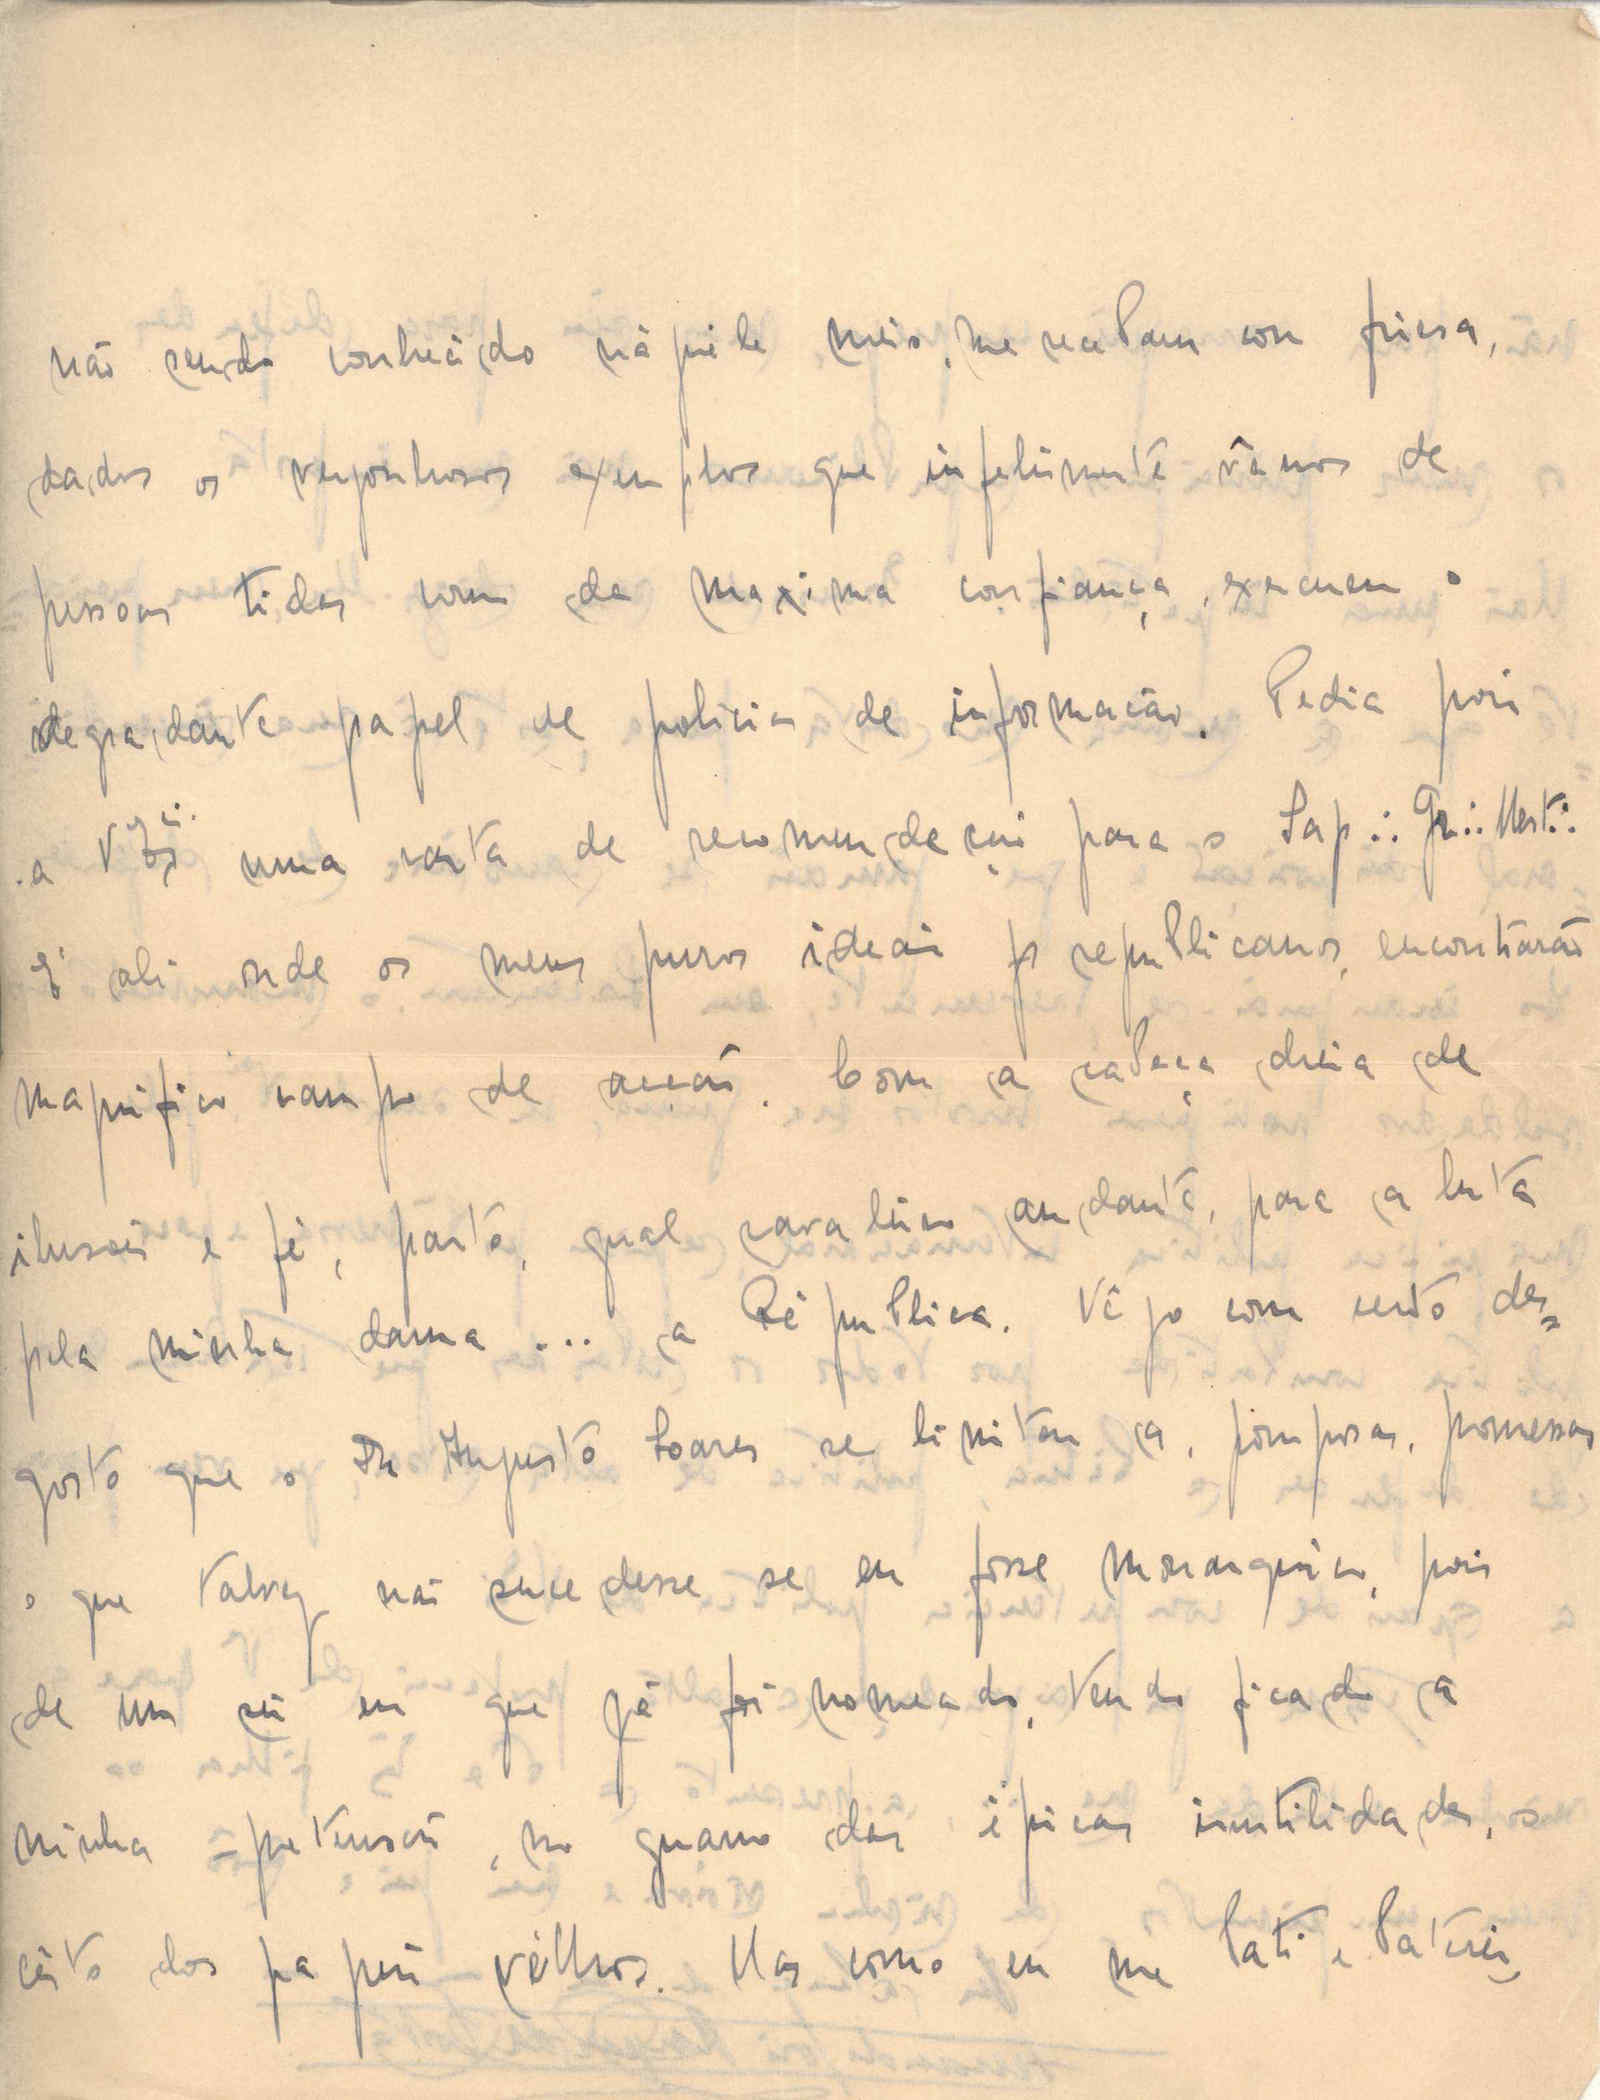 não sendo conhecido náquele meio, me recebam com frieza,
dados os vergonhosos exemplos que infelismente vêmos de
pessoas tidas como de maxima confiança, exercerem o
degradante papel de policias de informação. Pedia pois
a V. uma carta de recomendação para o Sap∴ Gr∴ Mest∴
E' ali onde os meus puros ideais republicanos, encontrarão
magnifico campo de acção. Com a cabeça cheia de
ilusões e fé, parto, qual cavaleiro andante, para a luta
pela minha dama ... a Républica. Vêjo com certo des=
gosto que o Dr Augusto Soares se limitou a, pomposas, promessas
o que talvez não sucedesse se eu fosse monarquico, pois
de um sei eu que já foi nomeado, tendo ficado a
minha pretensão, no guano das épicas inutilidades, o
cêsto dos papeis vélhos. Mas como eu me bati e baterei,